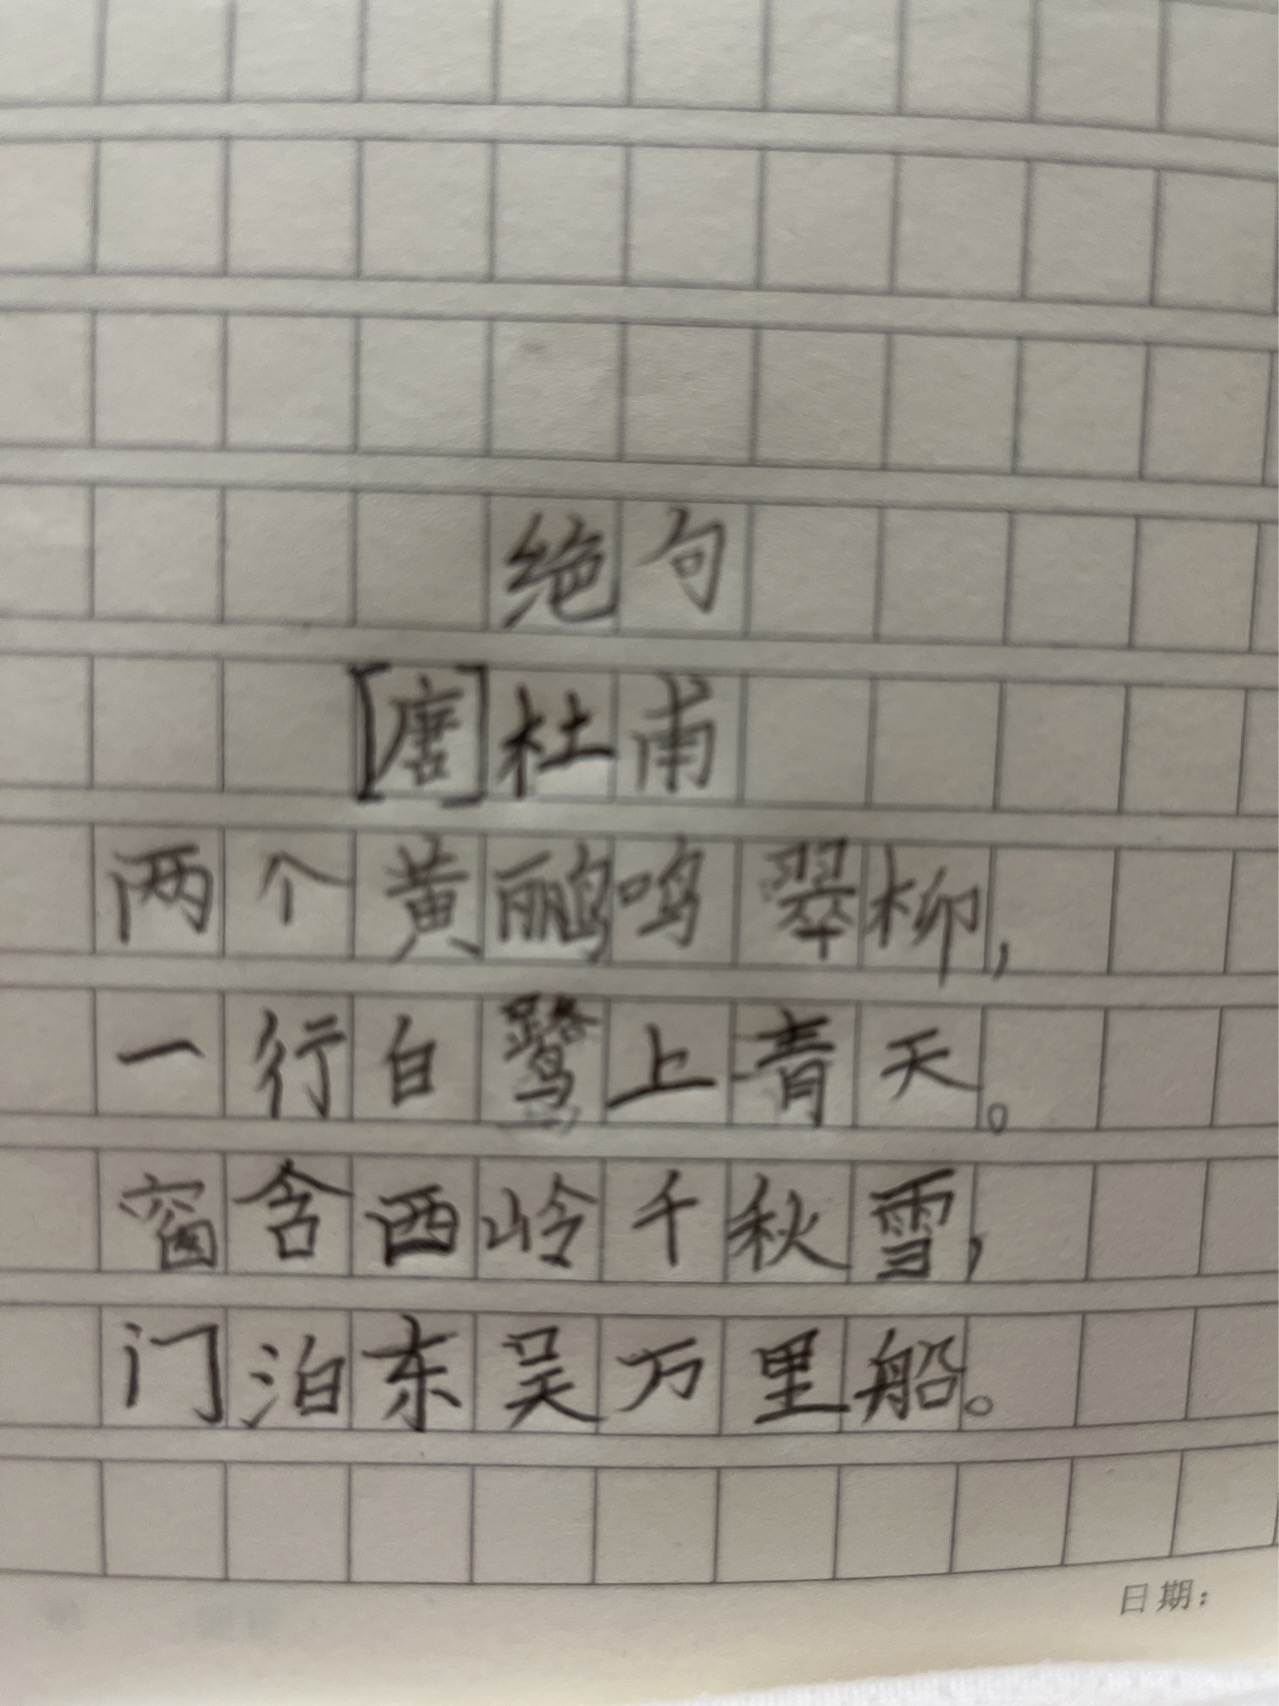 绝句
[唐]杜甫
两个黄鹂鸣翠柳,
一行白鹭上青天。
窗含西岭千秋雪,
门泊东吴万里船。
日期: